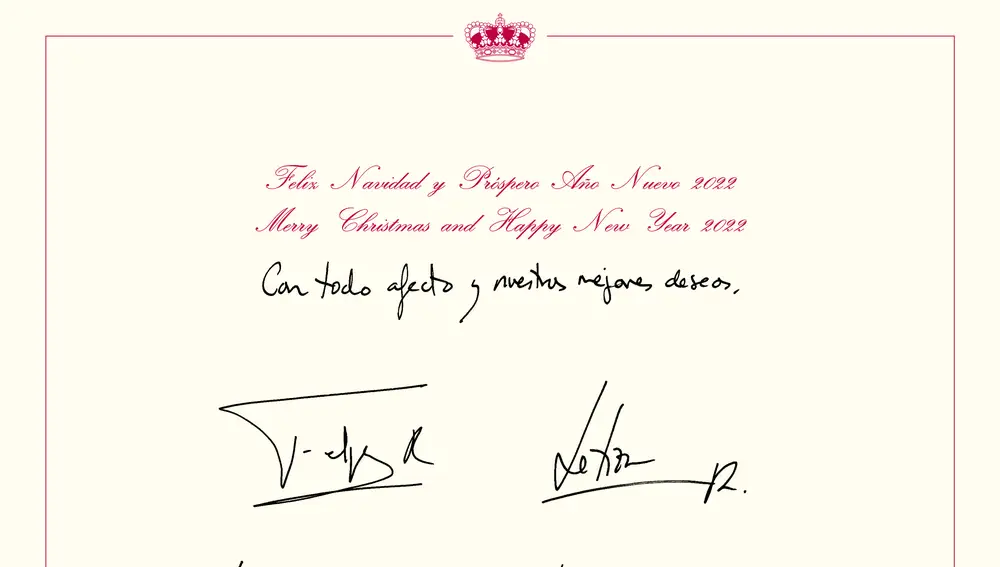 Feliz Navidad y Próspero Año Nuevo 2022
Merry Christmas and Happy New Year 2022
Con todo afecto y nuestros mejores deseos,
Felipe R
Letizia R.